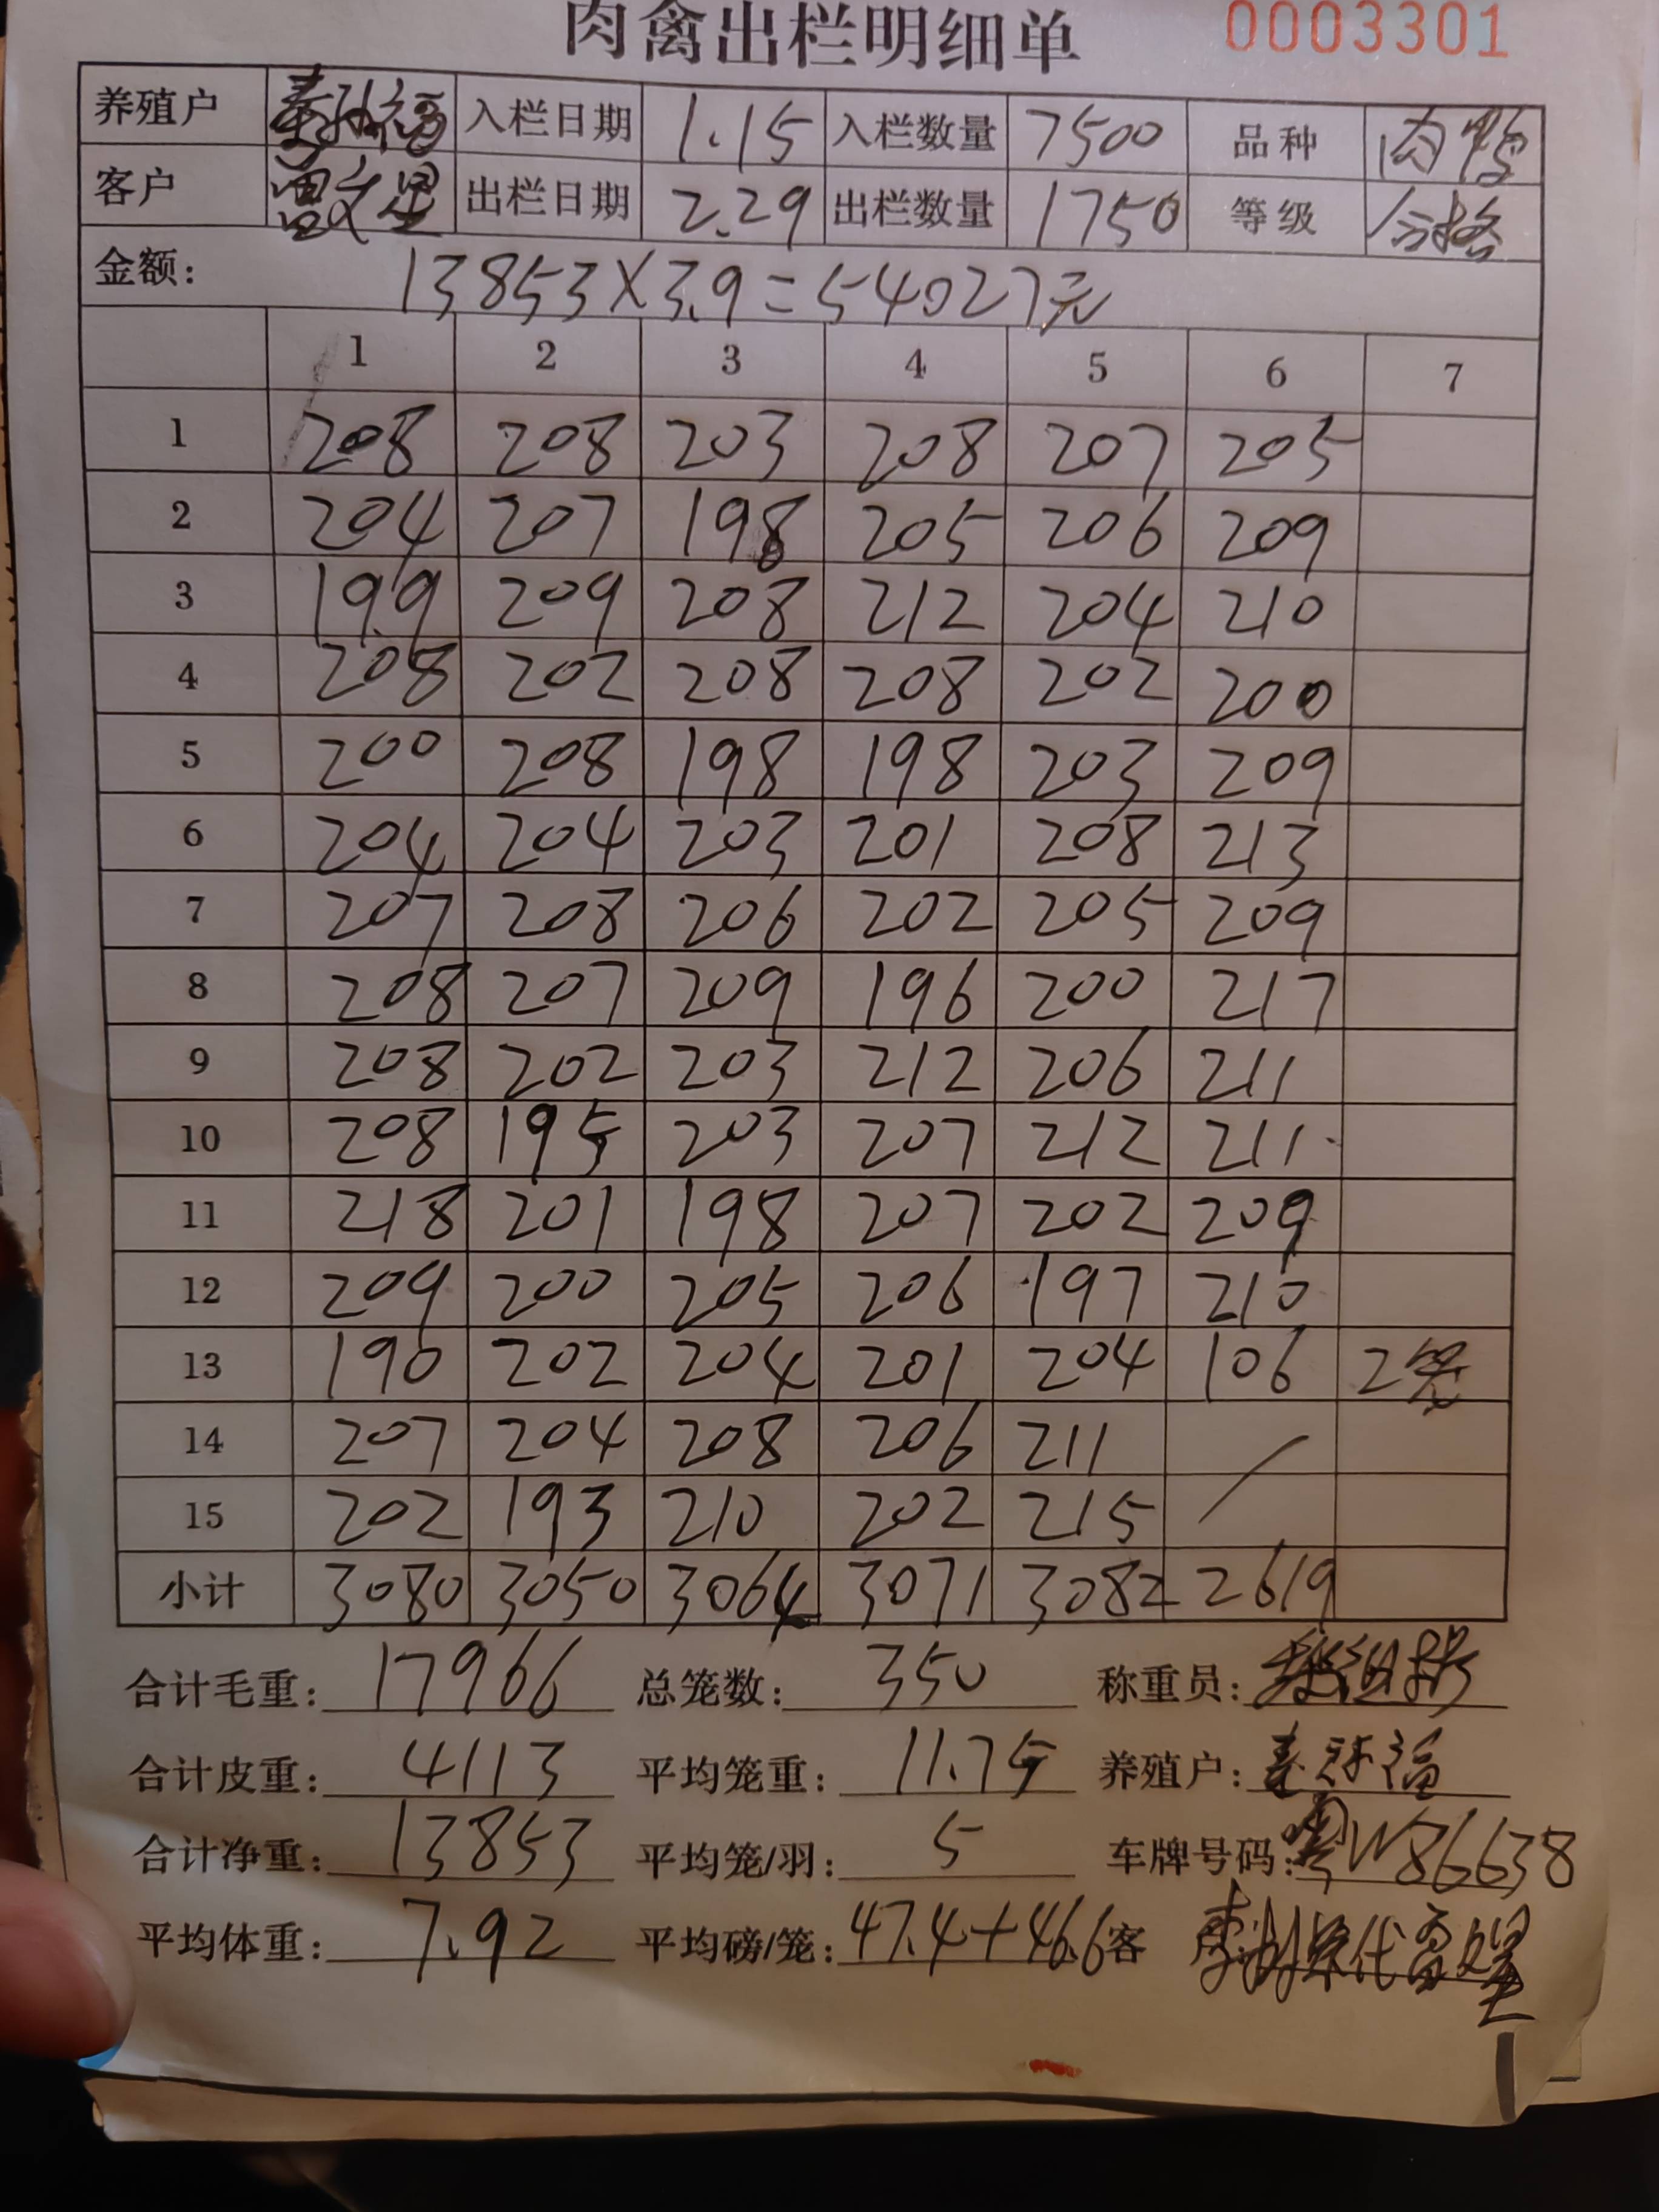 肉禽出栏明细单 0003301
养殖户 入栏日期 1.15 入栏数量 7500 品种 肉鸭
客户 出栏日期 2.29 出栏数量 1750 等级 合格
金额: 13853×3.9=54027元
1 2 3 4 5 6 7
1 208 208 203 208 207 205
2 204 207 198 205 206 209
3 199 209 208 212 204 210
4 208 202 208 208 202 200
5 200 208 198 198 203 209
6 204 204 203 201 208 213
7 207 208 206 202 205 209
8 208 207 209 196 200 217
9 208 202 203 212 206 211
10 208 195 203 207 212 211
11 218 201 198 207 202 209
12 209 200 205 206 197 210
13 190 202 204 201 204 106 2笼
14 207 204 208 206 211
15 202 193 210 202 215
小计 3080 3050 3064 3071 3082 2619
合计毛重: 17966 总笼数: 350 称重员:
合计皮重: 4113 平均笼重: 11.75 养殖户:
合计净重: 13853 平均笼/羽: 5 车牌号码: 粤W86638
平均体重: 7.92 平均磅/笼: 47.4+46.6 客